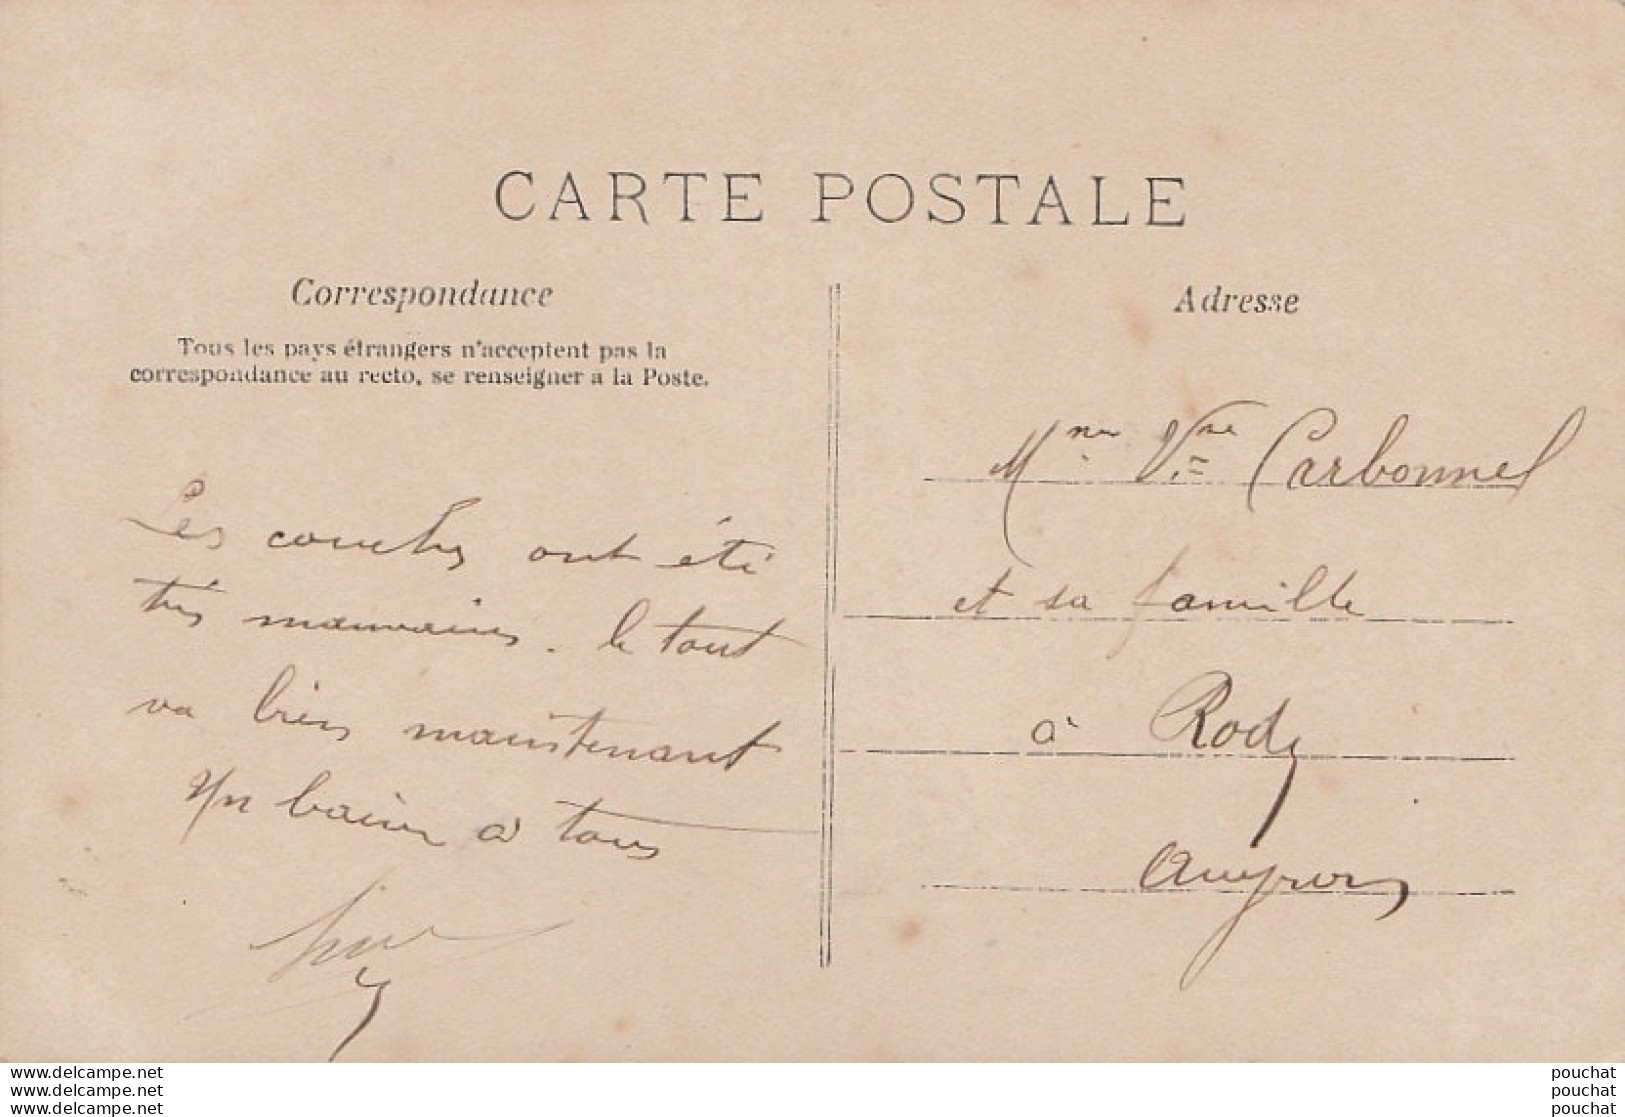 CARTE POSTALE
Correspondance
Tous les pays étrangers n'acceptent pas la
correspondance au recto, se renseigner a la Poste.
Les couches ont été
très mauvaises. le tout
va bien maintenant
Un baiser à tous
Adresse
Mme Vve Carbonnel
et sa famille
à Rodez
Aveyron
www.delcampe.net
www.delcampe.net
www.delcampe.net
pouchat
pouchat
pouchat